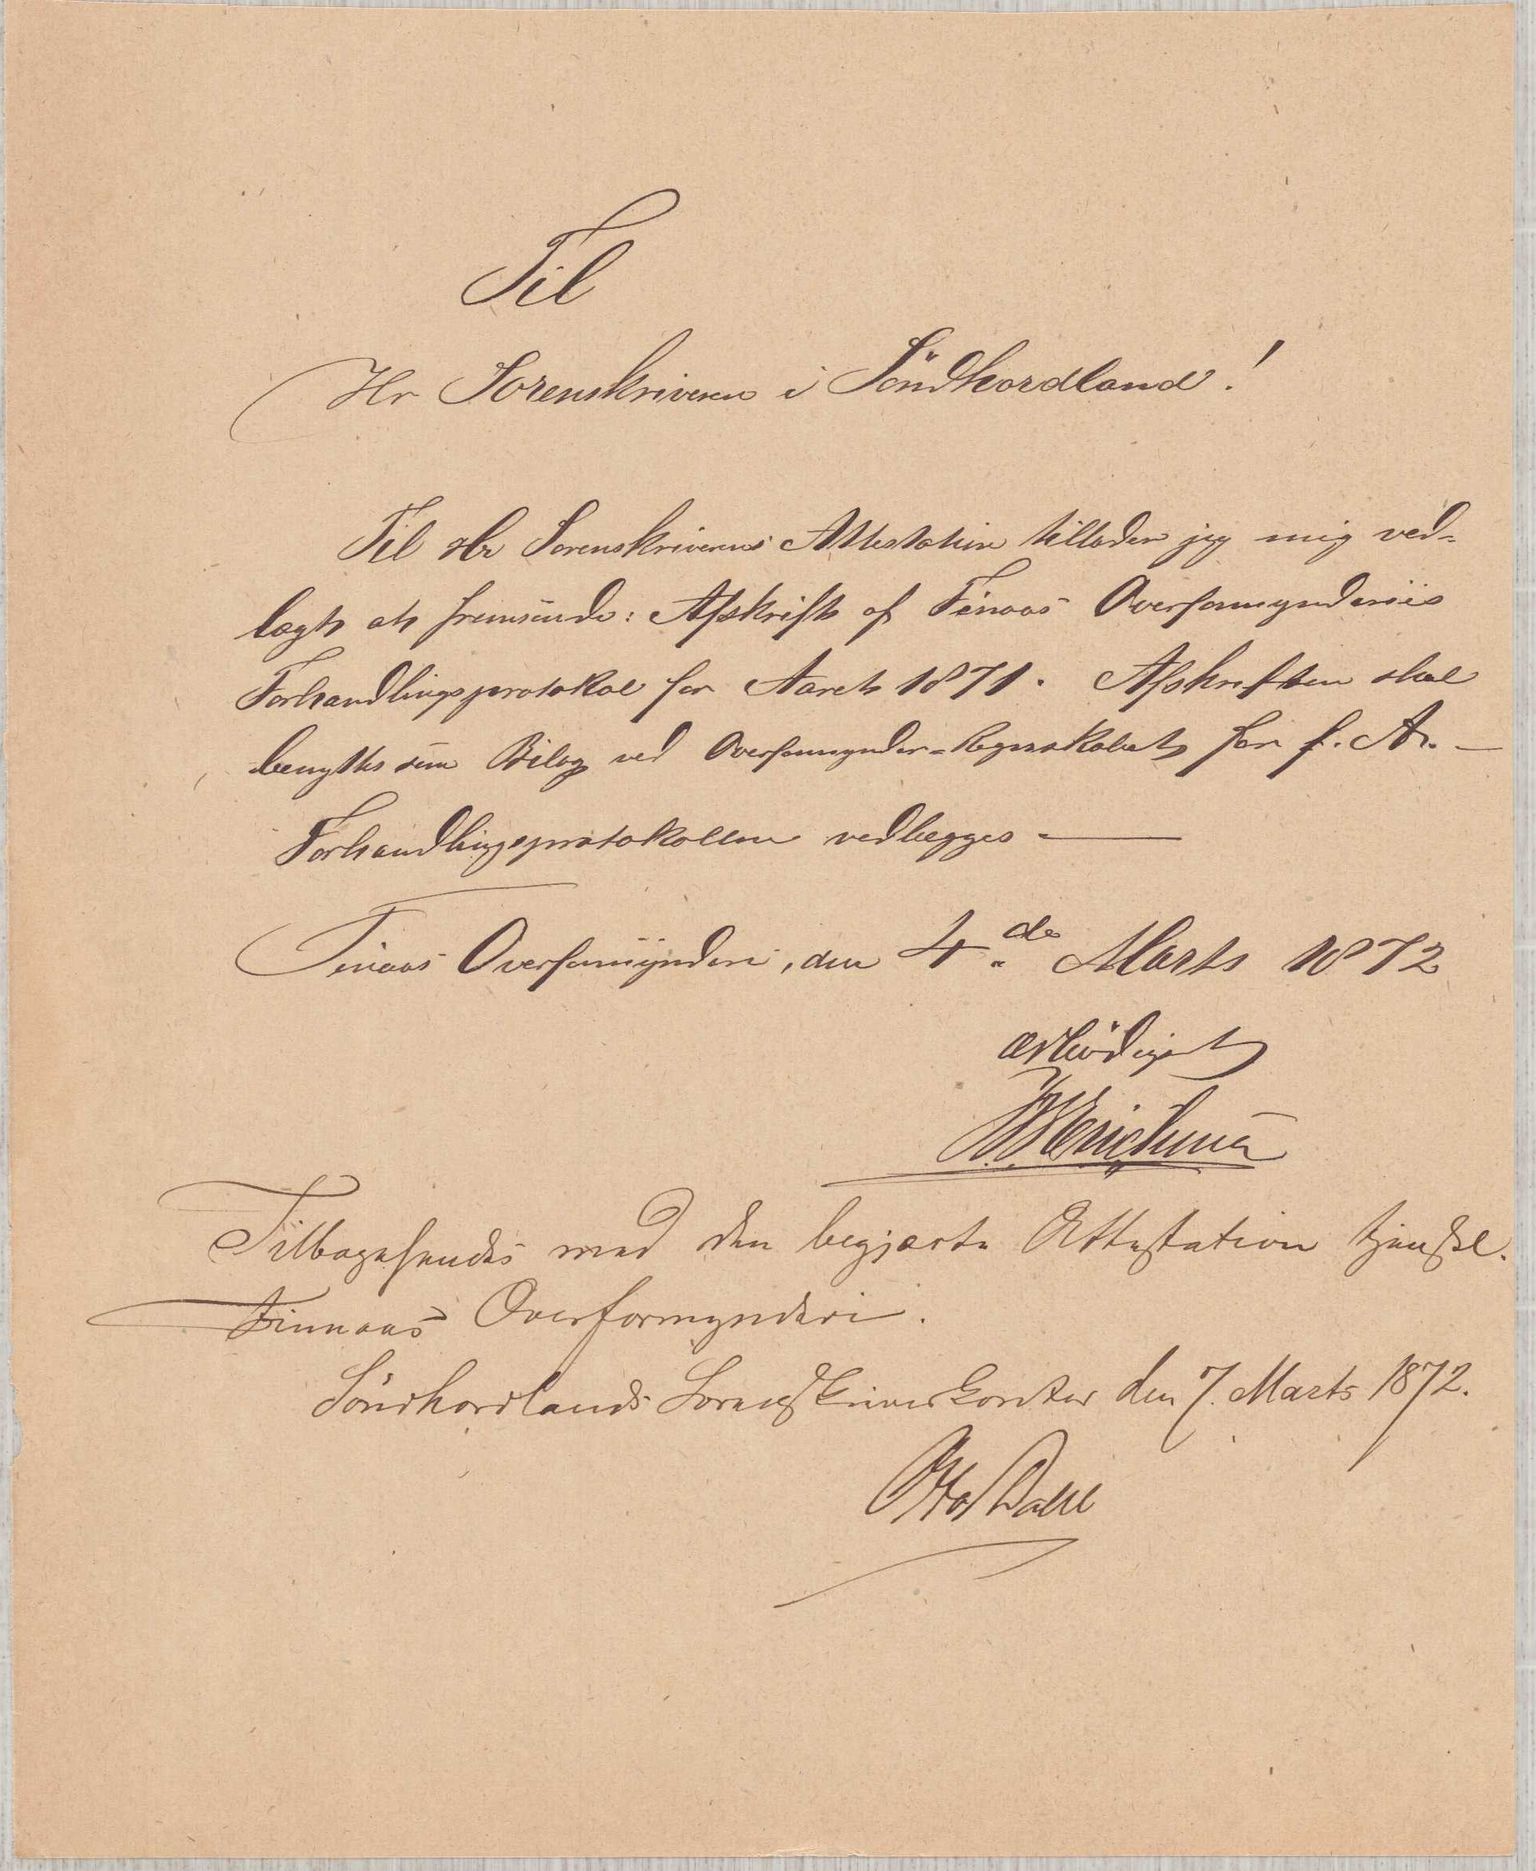 Til
Hr Sorenskriveren i Söndhordland!
Til Hr Sorenskriverens Attestation tillader jeg mig ved-
lagt at fremsende: Afskrift af Finaas Overformynderiis
Forhandlingsprotokol for Aaret 1871. Afskriften skal
benyttes som Bilag ved Overformynder-Regnskabet for f. Ar. —
Forhandlingsprotokollen vedlægges —
Finaas Overformynderi, den 4.de Marts 1872
ærbødigst
Tilbagesendes med den begjærte Attestation tjenstl.
Finnaas Overformynderi.
Söndhordlands Sorenskriverkontor den 7. Marts 1872.
Otto Dahl